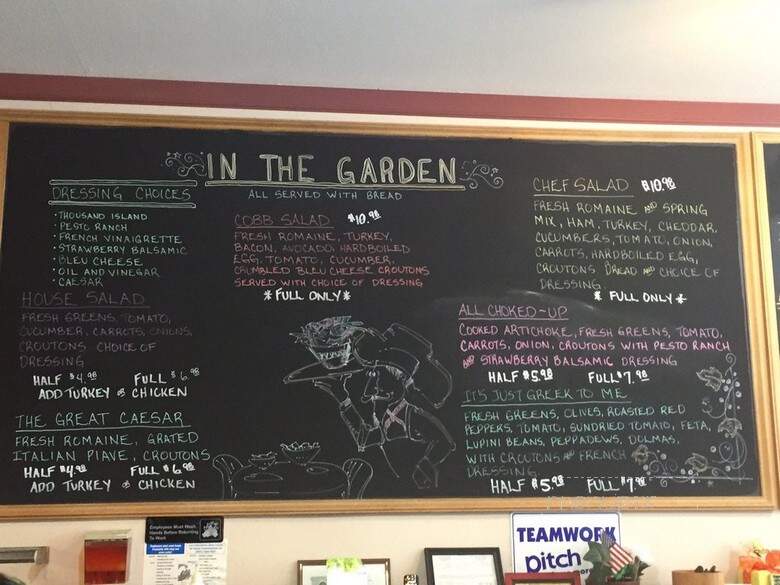 IN THE GARDEN
ALL SERVED WITH BREAD
DRESSING CHOICES
• THOUSAND ISLAND
• PESTO RANCH
• FRENCH VINAIGRETTE
• STRAWBERRY BALSAMIC
• BLEU CHEESE
• OIL AND VINEGAR
• CAESAR
HOUSE SALAD
FRESH GREENS, TOMATO,
CUCUMBER, CARROTS, ONIONS,
CROUTONS CHOICE OF
DRESSING
HALF $4.98 FULL $6.98
ADD TURKEY & CHICKEN
THE GREAT CAESAR
FRESH ROMAINE, GRATED
ITALIAN PIAVE, CROUTONS
HALF $4.98 FULL $6.98
ADD TURKEY & CHICKEN
COBB SALAD $10.98
FRESH ROMAINE, TURKEY,
BACON, AVOCADO, HARDBOILED
EGG, TOMATO, CUCUMBER,
CRUMBLED BLEU CHEESE CROUTONS
SERVED WITH CHOICE OF DRESSING
* FULL ONLY *
CHEF SALAD $10.98
FRESH ROMAINE AND SPRING
MIX, HAM, TURKEY, CHEDDAR,
CUCUMBERS, TOMATO, ONION,
CARROTS, HARDBOILED EGG,
CROUTONS BREAD AND CHOICE OF
DRESSING
* FULL ONLY *
ALL CHOKED-UP
COOKED ARTICHOKE, FRESH GREENS, TOMATO,
CARROTS, ONION, CROUTONS WITH PESTO RANCH
AND STRAWBERRY BALSAMIC DRESSING
HALF $5.98 FULL $7.98
IT'S JUST GREEK TO ME
FRESH GREENS, OLIVES, ROASTED RED
PEPPERS, TOMATO, SUNDRIED TOMATO, FETA,
LUPINI BEANS, PEPPADEWS, DOLMAS,
WITH CROUTONS AND FRENCH
DRESSING
HALF $5.98 FULL $7.98
Employees Must Wash
Hands Before Returning
To Work
TEAMWORK
pitch